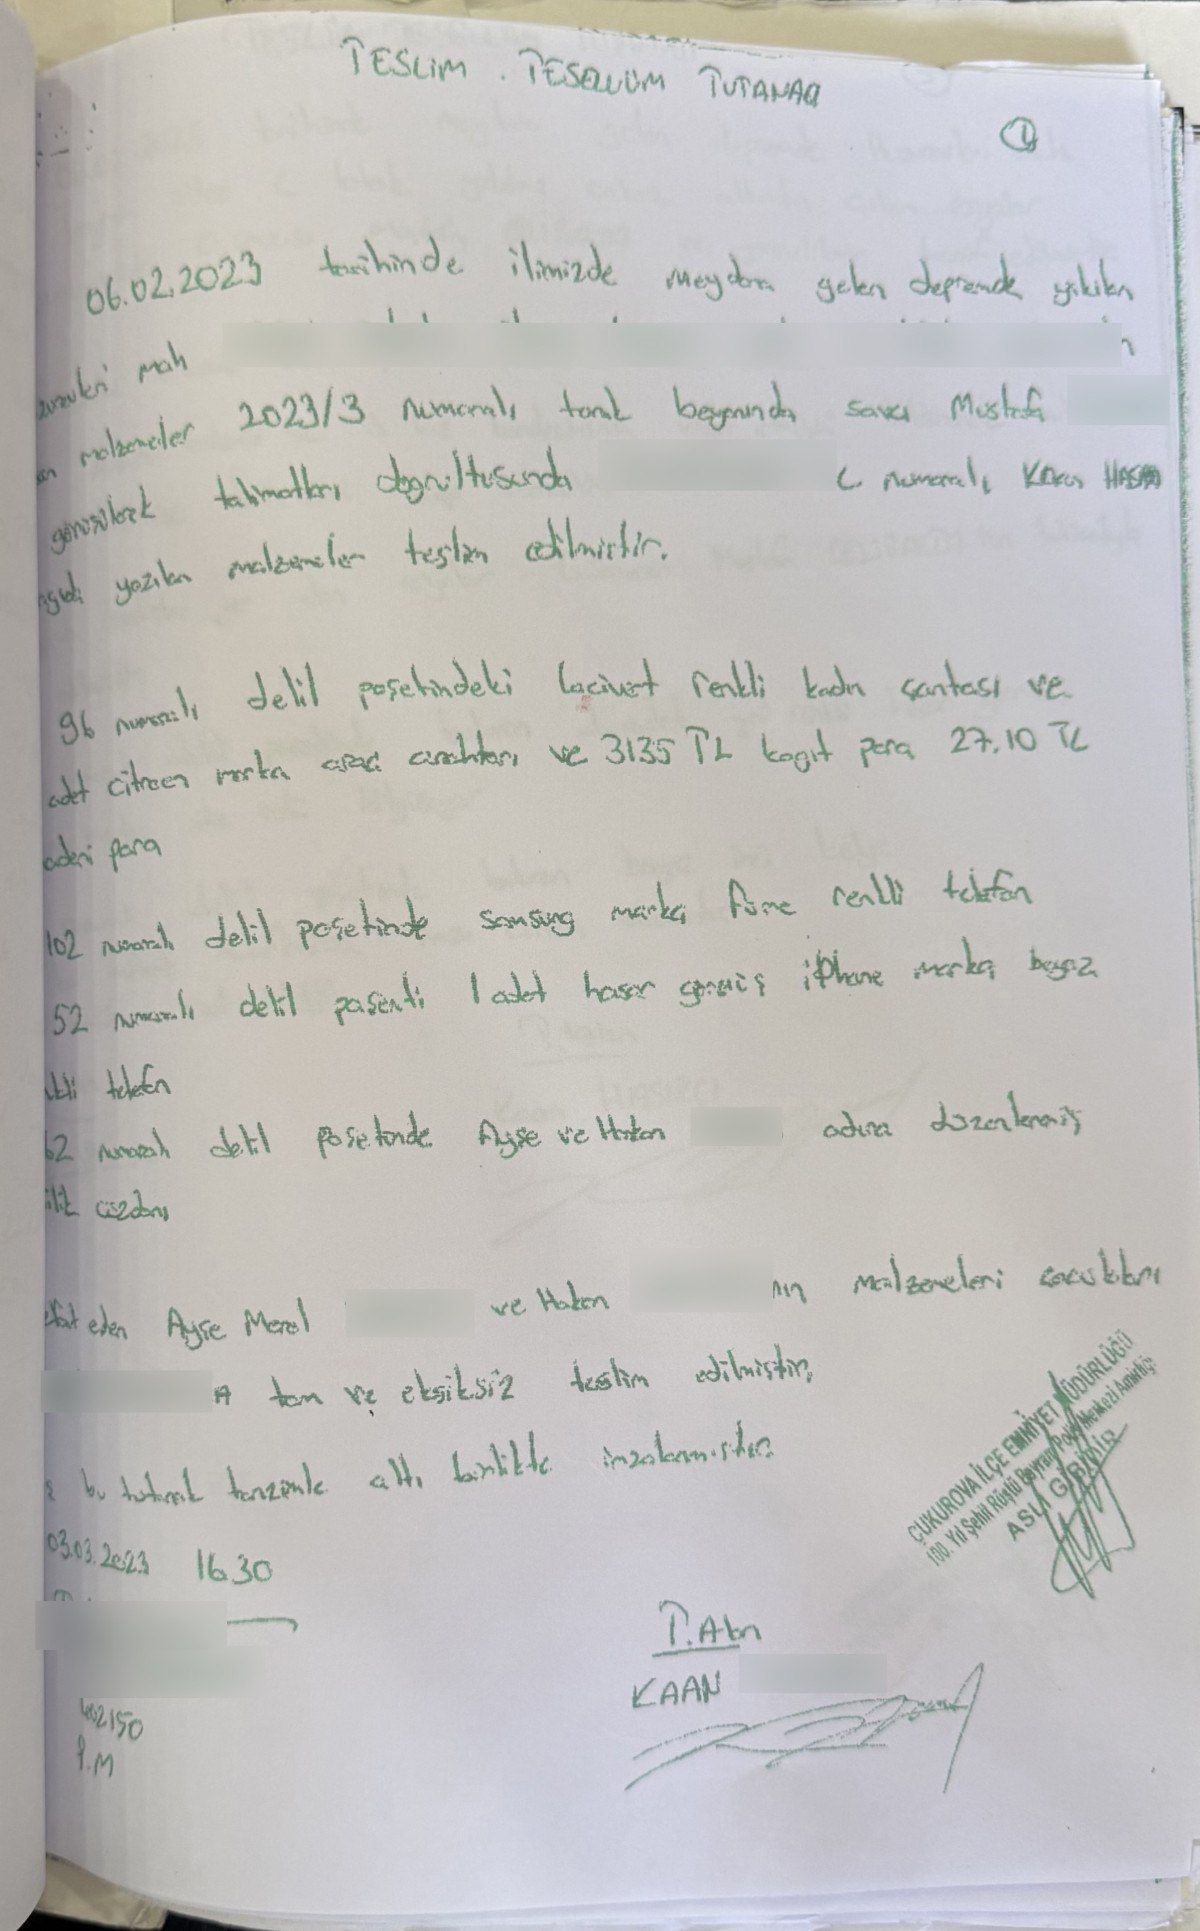 TESLİM . TESELLÜM TUTANAĞI
1
06.02.2023 tarihinde ilimizde meydana gelen depremde yıkılan
mah
malzemeler 2023/3 numaralı tanık beyanında savcı Mustafa
görüşülerek talimatları doğrultusunda numaralı Kaan
yazılan malzemeler teslim edilmiştir.
96 numaralı delil poşetindeki lacivert renkli kadın çantası ve
adet citroen marka araç anahtarı ve 3135 TL kağıt para 27.10 TL
adeni para
102 numaralı delil poşetinde samsung marka füme renkli telefon
52 numaralı delil poşenti 1 adet hasar görmüş iPhone marka beyaz
kli telefon
62 numaralı delil poşetinde Ayşe ve Hakan adına düzenlenmiş
lik cüzdanı
efat eden Ayşe Meral ve Hakan nın malzemeleri çocukları
A tam ve eksiksiz teslim edilmiştir,
bu tutanak tanzimle altı birlikte imzalanmıştır.
03.03.2023 16.30
ÇUKUROVA İLÇE EMNİYET MÜDÜRLÜĞÜ
100. Yıl Şehit Rüştü Bayram Polis Merkezi Amirliği
ASLI GİBİDİR
T.Alan
KAAN
402150
P.M